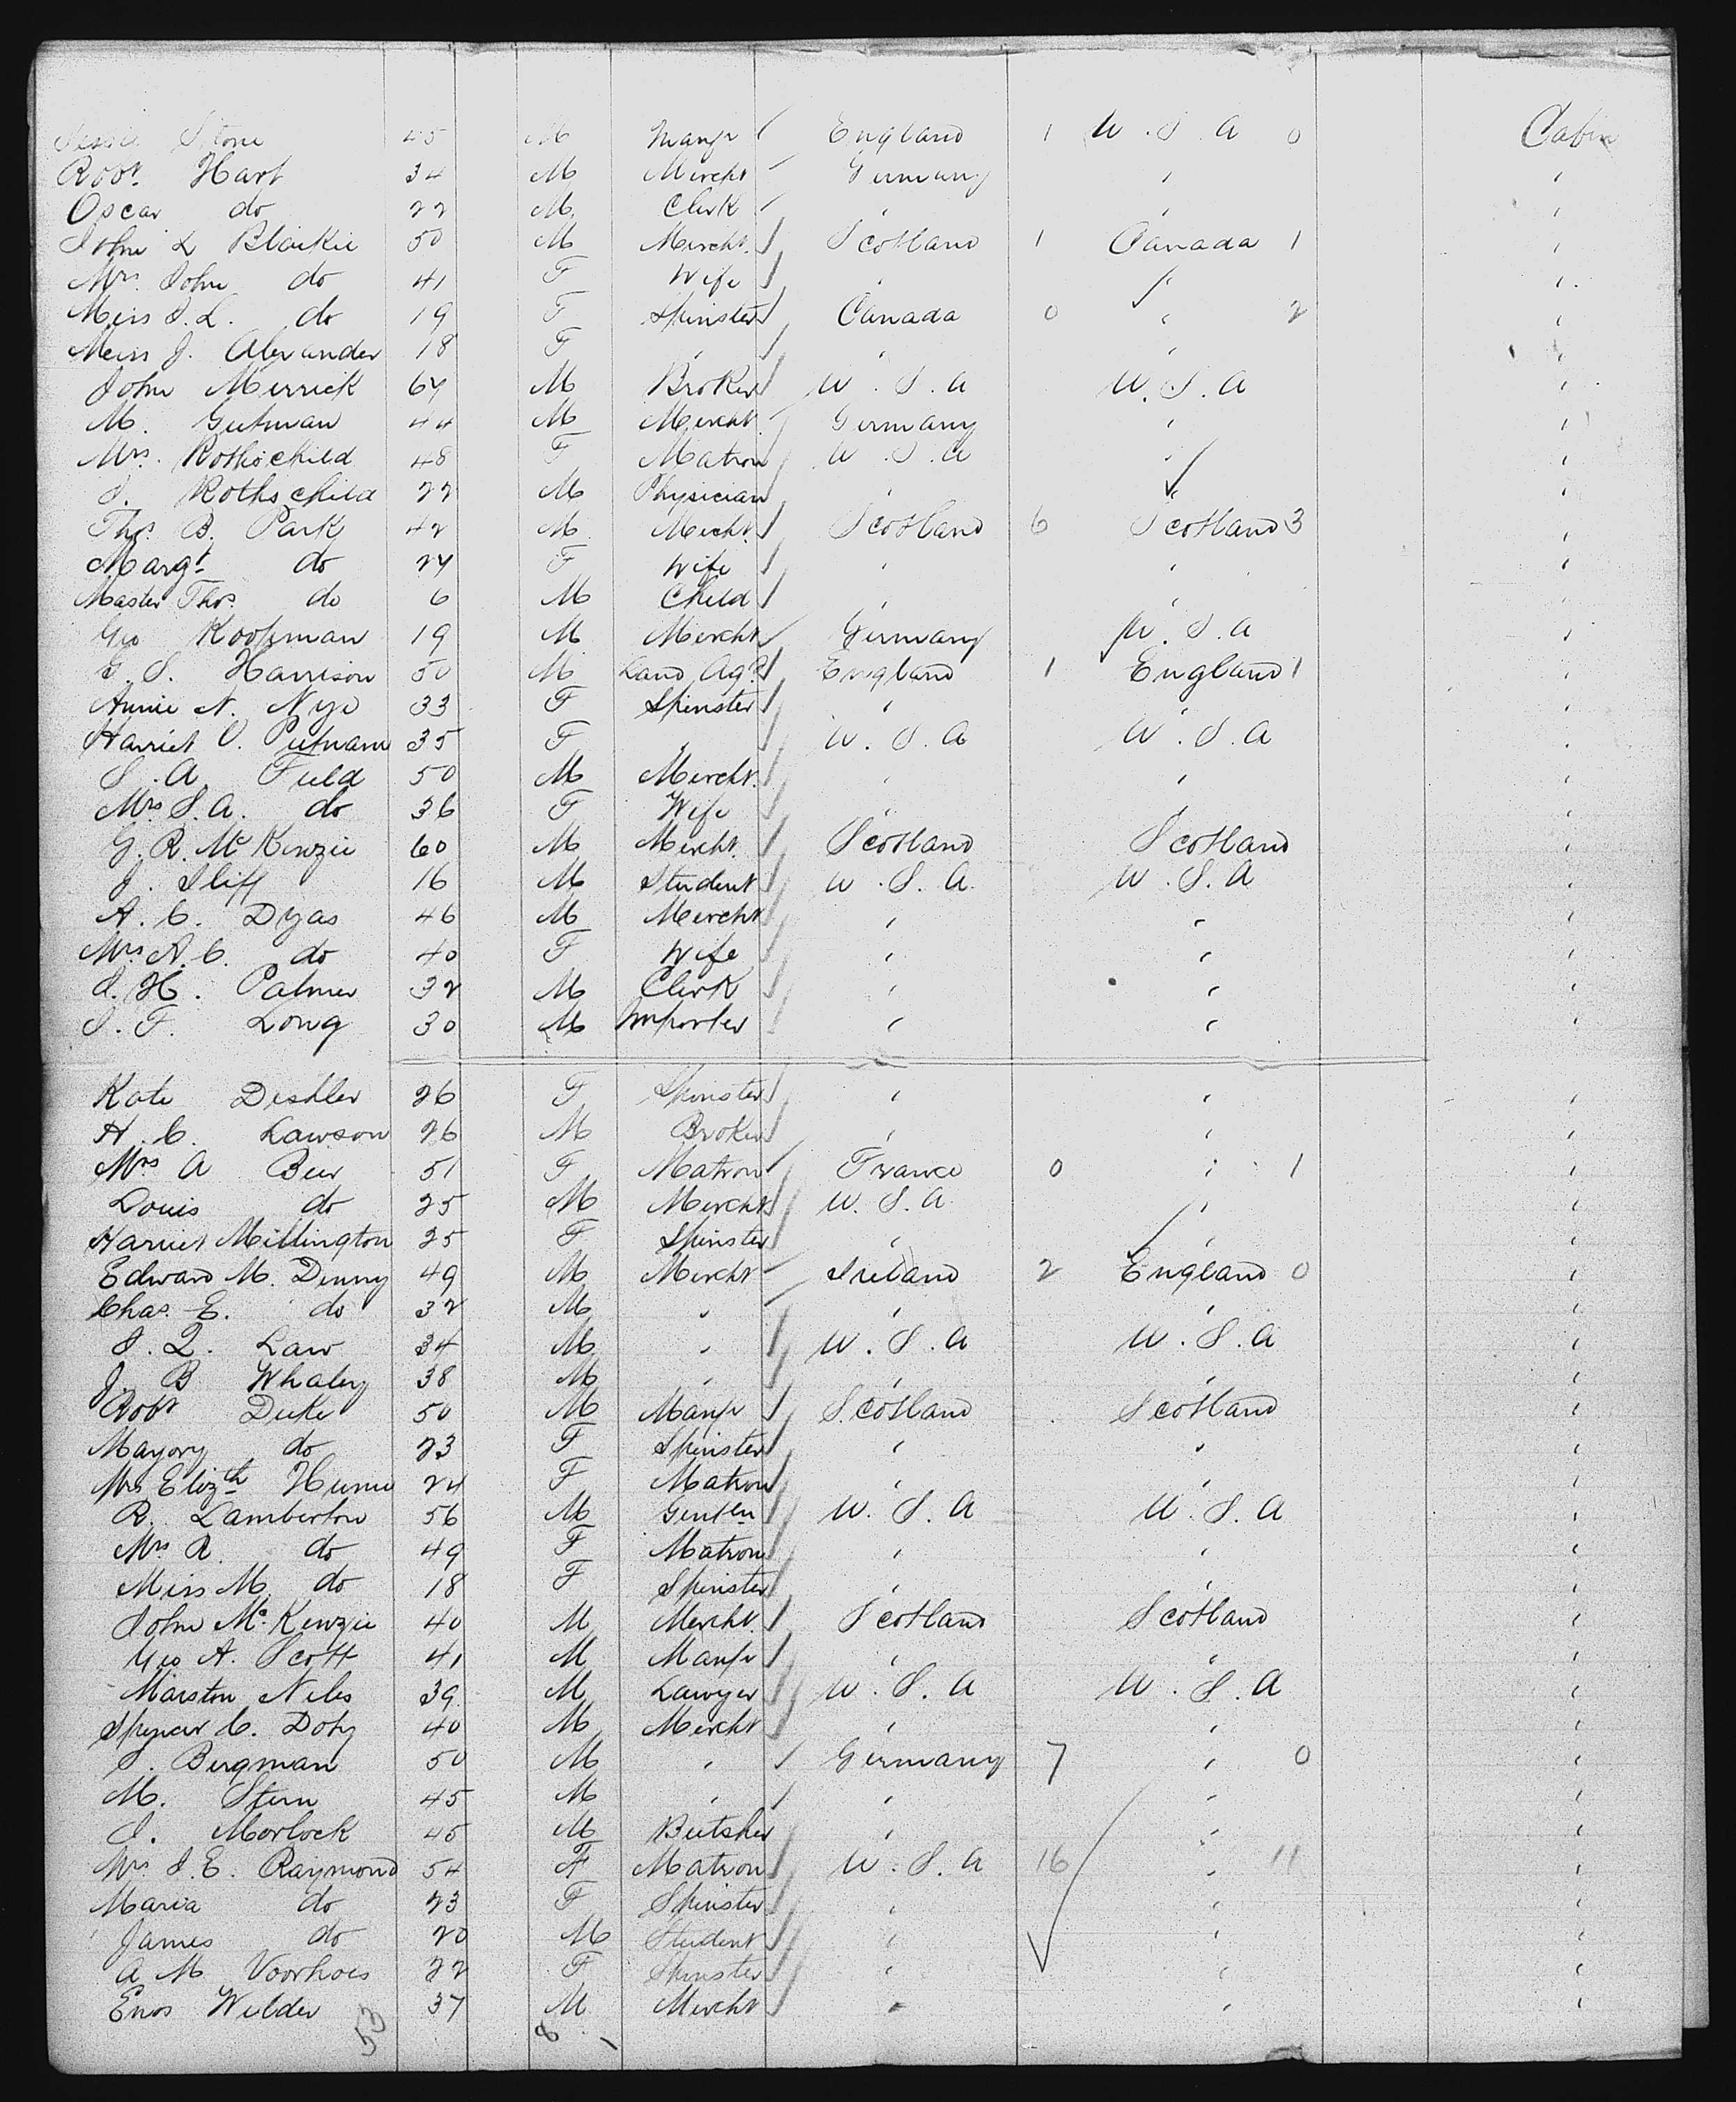 Jesse Stone 45 M Manfr England 1 U.S.A 0 Cabin
Robt. Hart 34 M Mercht Germany " "
Oscar do 22 M. Clerk " " "
John L Blaikie 50 M Mercht. Scotland 1 Canada 1 "
Mrs. John do 41 F Wife " " "
Miss J.L. do 19 F Spinster Canada 0 " 2 "
Miss J. Alexander 18 F " " " "
John Merrick 64 M Broker U.S.A U.S.A "
M. Gutman 44 M Mercht. Germany " "
Mrs. Rothschild 48 F Matron U.S.A " "
J. Rothschild 22 M Physician " " "
Thos. B. Park 42 M Mercht. Scotland 6 Scotland 3 "
Margt. do 24 F Wife " " "
Master Thos. do 6 M Child " " "
Geo Koopman 19 M Mercht Germany U.S.A "
G. S. Harrison 50 M Land Agt England 1 England 1 "
Annie N. Nye 33 F Spinster " " "
Harriet O. Putnam 35 F " U.S.A U.S.A "
S. A. Fuld 50 M Mercht. " " "
Mrs S.A. do 36 F Wife " " "
G. R. McKenzie 60 M Mercht. Scotland Scotland "
J. Iliff 16 M Student U.S.A. U.S.A "
A. C. Dyas 46 M Mercht " " "
Mrs A. C. do 40 F Wife " " "
J. H. Palmer 32 M Clerk " " "
J. F. Long 30 M Importer " " "
Kate Deshler 26 F Spinster " " "
H. C. Lawson 26 M Broker " " "
Mrs A Beer 51 F Matron France 0 " 1 "
Louis do 25 M Mercht U.S.A. " "
Harriet Millington 25 F Spinster " " "
Edward M. Denny 49 M Mercht Ireland 2 England 0 "
Chas. E. do 32 M " " " "
J. Q. Law 34 M " U.S.A U.S.A "
J. B Whaley 38 M " " " "
Robt Duke 50 M Manfr Scotland Scotland "
Mayory do 23 F Spinster " " "
Mrs Elizth Hume 24 F Matron " " "
R. Lamberton 56 M Gentln U.S.A U.S.A "
Mrs R. do 49 F Matron " " "
Miss M. do 18 F Spinster " " "
John McKenzie 40 M Mercht. Scotland Scotland "
Geo A. Scott 41 M Manfr " " "
Marston Niles 39 M Lawyer U.S.A U.S.A "
Spencer C. Doty 40 M Mercht " " "
S. Bergman 50 M " Germany 7 " 0 "
M. Stern 45 M " " " "
J. Morlock 45 M Butsher " " "
Mrs J. E. Raymond 54 F Matron U.S.A 16 " 11 "
Maria do 23 F Spinster " " "
James do 20 M Student " " "
A M Voorhoes 22 F Spinster " " "
Enos Wilder 37 M Mercht " " "
53 8